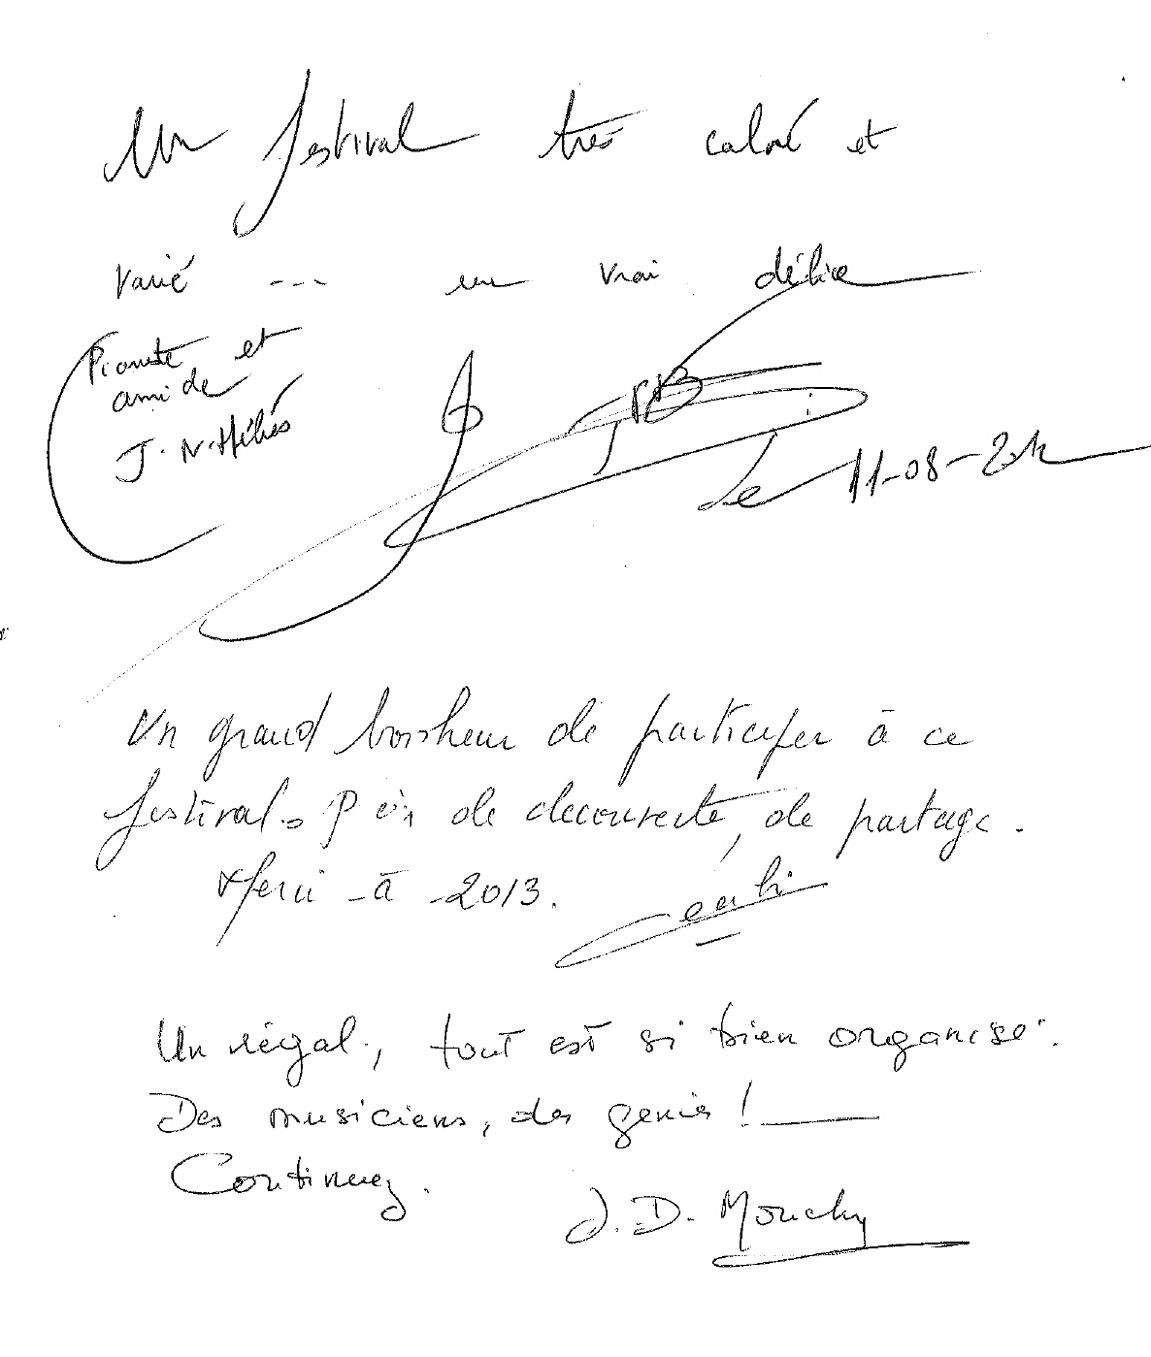 Un festival très calmé et
varié --- un vrai délice
Pianiste et
ami de
J. N. Héliès
Le 11-08-2012
Un grand bonheur de participer à ce
festival. de decouverte, de partage.
Merci - à - 2013.
Un régal, tout est si bien organisé.
Des musiciens, des genies !
Continuez.
J. D. Mouchy